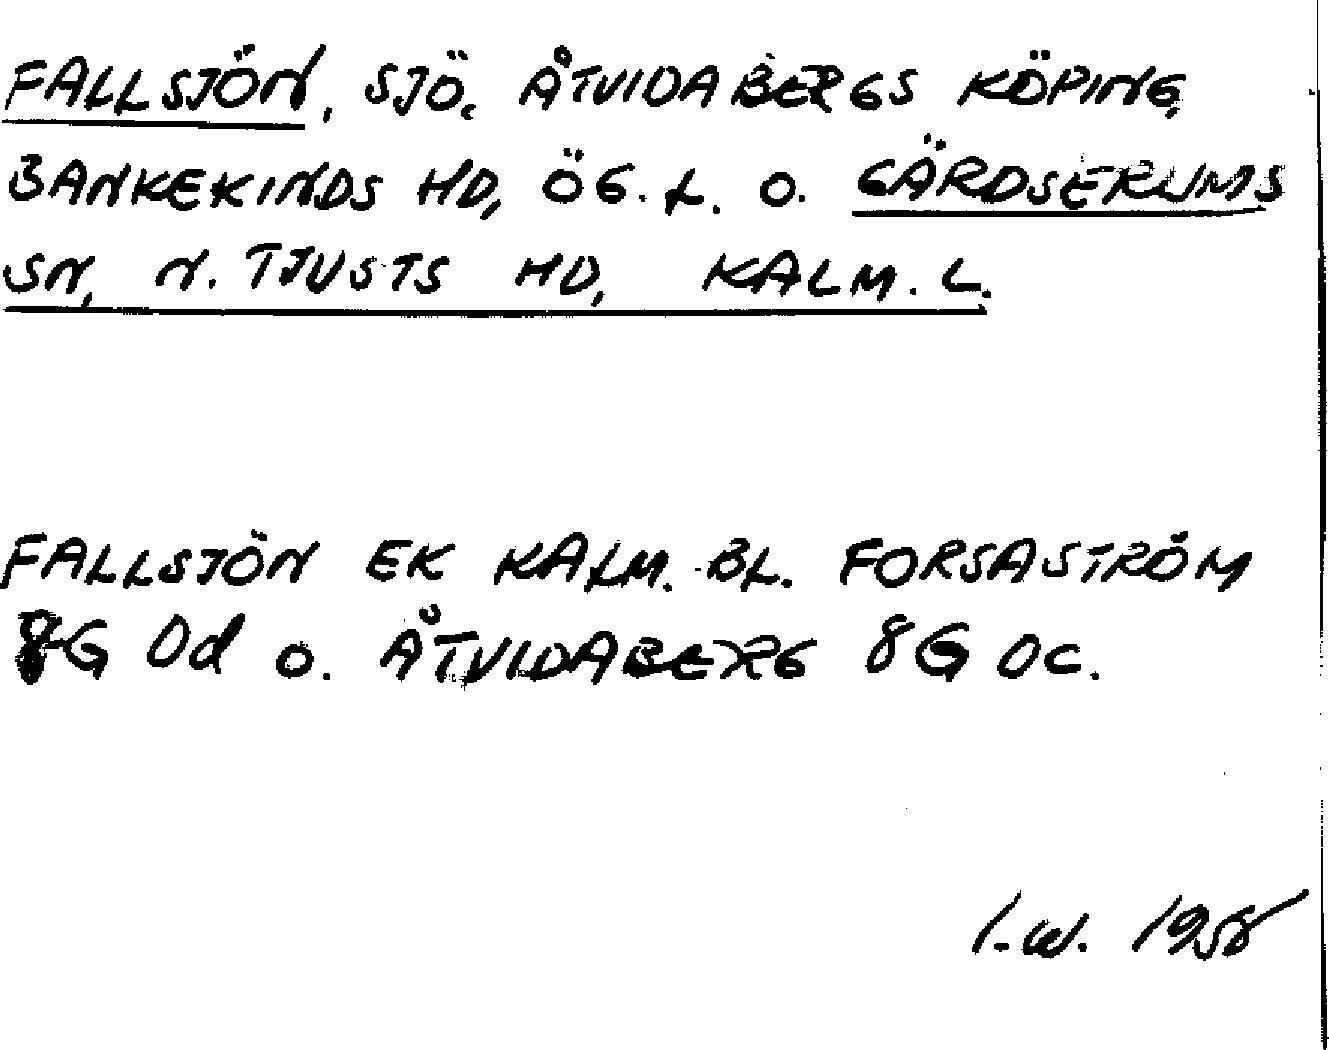 FALLSJÖN, SJÖ. ÅTVIDABERGS KÖPING,
BANKEKINDS HD, ÖG. L. O. GÄRDSERUMS
SN, N. TJUSTS HD, KALM. L.
FALLSJÖN EK KALM. BL. FORSASTRÖM
8G 0d O. ÅTVIDABERG 8G 0c.
I.W. 1958